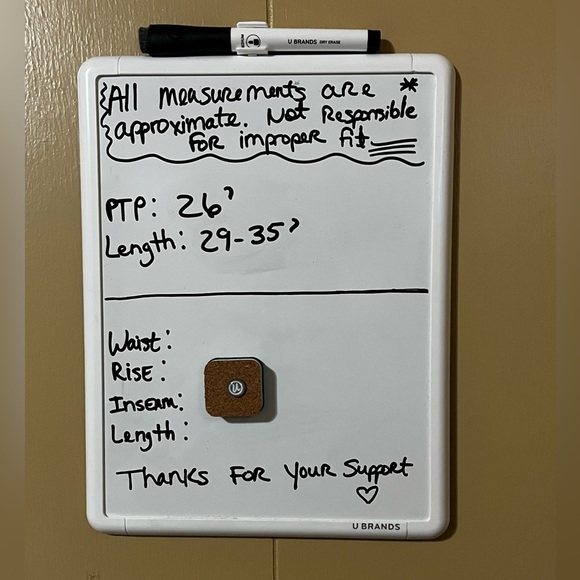 U BRANDS DRY ERASE
All measurements are *
approximate. Not Responsible
for improper fit
PTP: 26’
Length: 29-35’
Waist:
Rise:
Inseam:
Length:
Thanks For Your Support
♡
U BRANDS